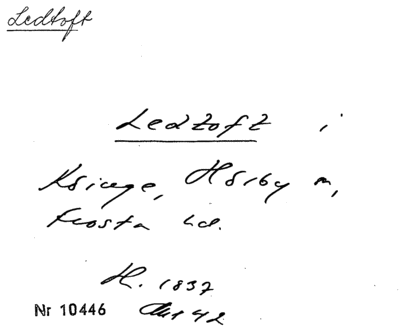 Ledtoft
Ledtoft i
Hörby m,
Frosta hd.
H. 1837
Nr 10446 42